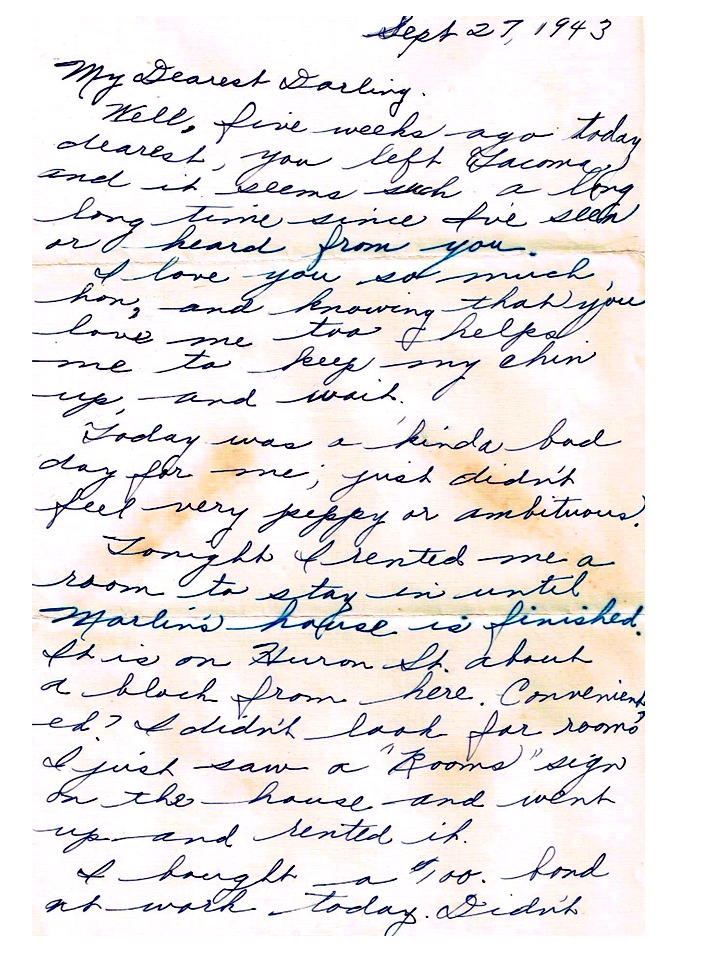 Sept 27, 1943
My Dearest Darling.
Well, five weeks ago today
dearest, you left Tacoma,
and it seems such a long
long time since I've seen
or heard from you.
I love you so much,
hon, and knowing that you
love me too helps
me to keep my chin
up, and wait.
Today was a kinda bad
day for me; just didn't
feel very peppy or ambituous.
Tonight I rented me a
room to stay in until
Marlin's house is finished.
It is on Huron St. about
a block from here. Convenient,
eh? I didn't look for rooms,
I just saw a "Rooms" sign
on the house and went
up and rented it.
I bought a $100. bond
at work today. Didn't